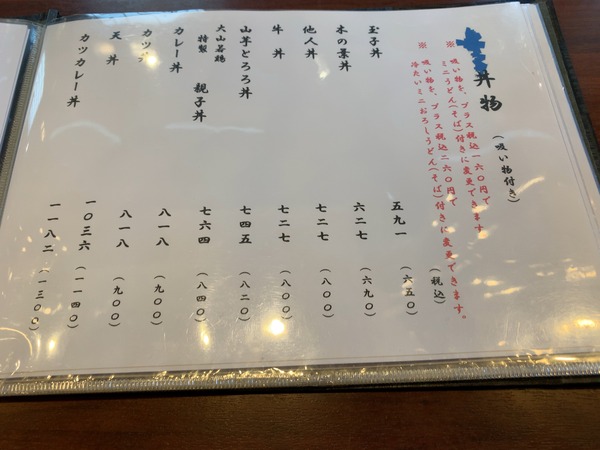 丼物 (吸い物付き)
※ 吸い物を、プラス税込一六〇円で
ミニうどん(そば)付きに変更できます
※ 吸い物を、プラス税込二六〇円で
冷たいミニおろしうどん(そば)付きに変更できます。
(税込)
玉子丼 五九一 (六五〇)
木の葉丼 六二七 (六九〇)
他人丼 七二七 (八〇〇)
牛丼 七二七 (八〇〇)
山芋とろろ丼 七四五 (八二〇)
大山若鶏
特製 親子丼 七六四 (八四〇)
カレー丼 八一八 (九〇〇)
カツ 八一八 (九〇〇)
天丼 一〇三六 (一一四〇)
カツカレー丼 一一八二 (一三〇〇)